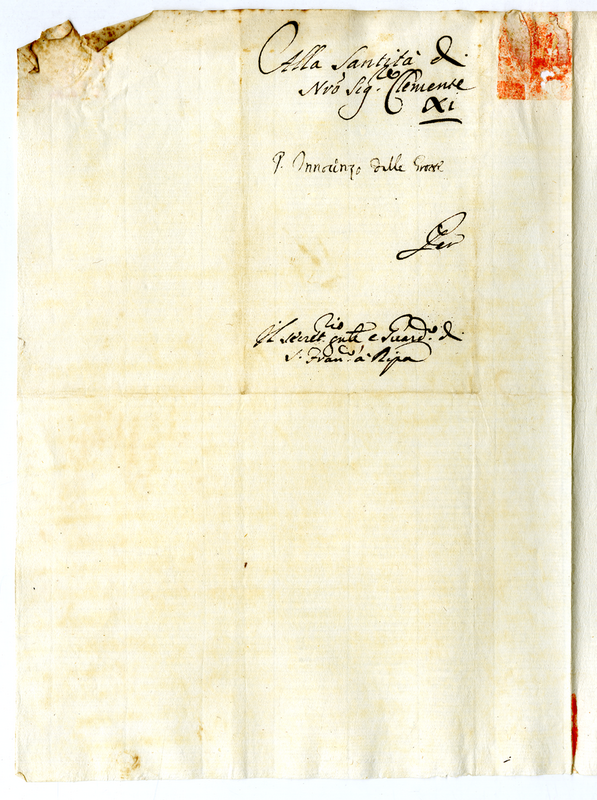 Alla Santità di
Nrõ Sigre Clemente
XI
P. Innocenzo delle Grotte
Per
Il Secretrio gnle e Guardno di
S. Franco à Ripa